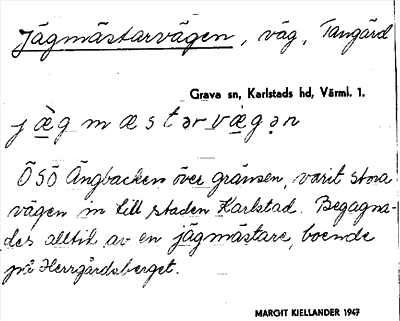 Jägmästarvägen, väg, Tangård
Grava sn, Karlstads hd, Värml. 1.
jæ̀gmæstərvæ̣gən
ÖSÖ Ängbacken över gränsen, varit stora
vägen in till staden Karlstad. Begagna-
des alltid av en jägmästare, boende
på Herrgårdsberget.
MARGIT KIELLANDER 1947